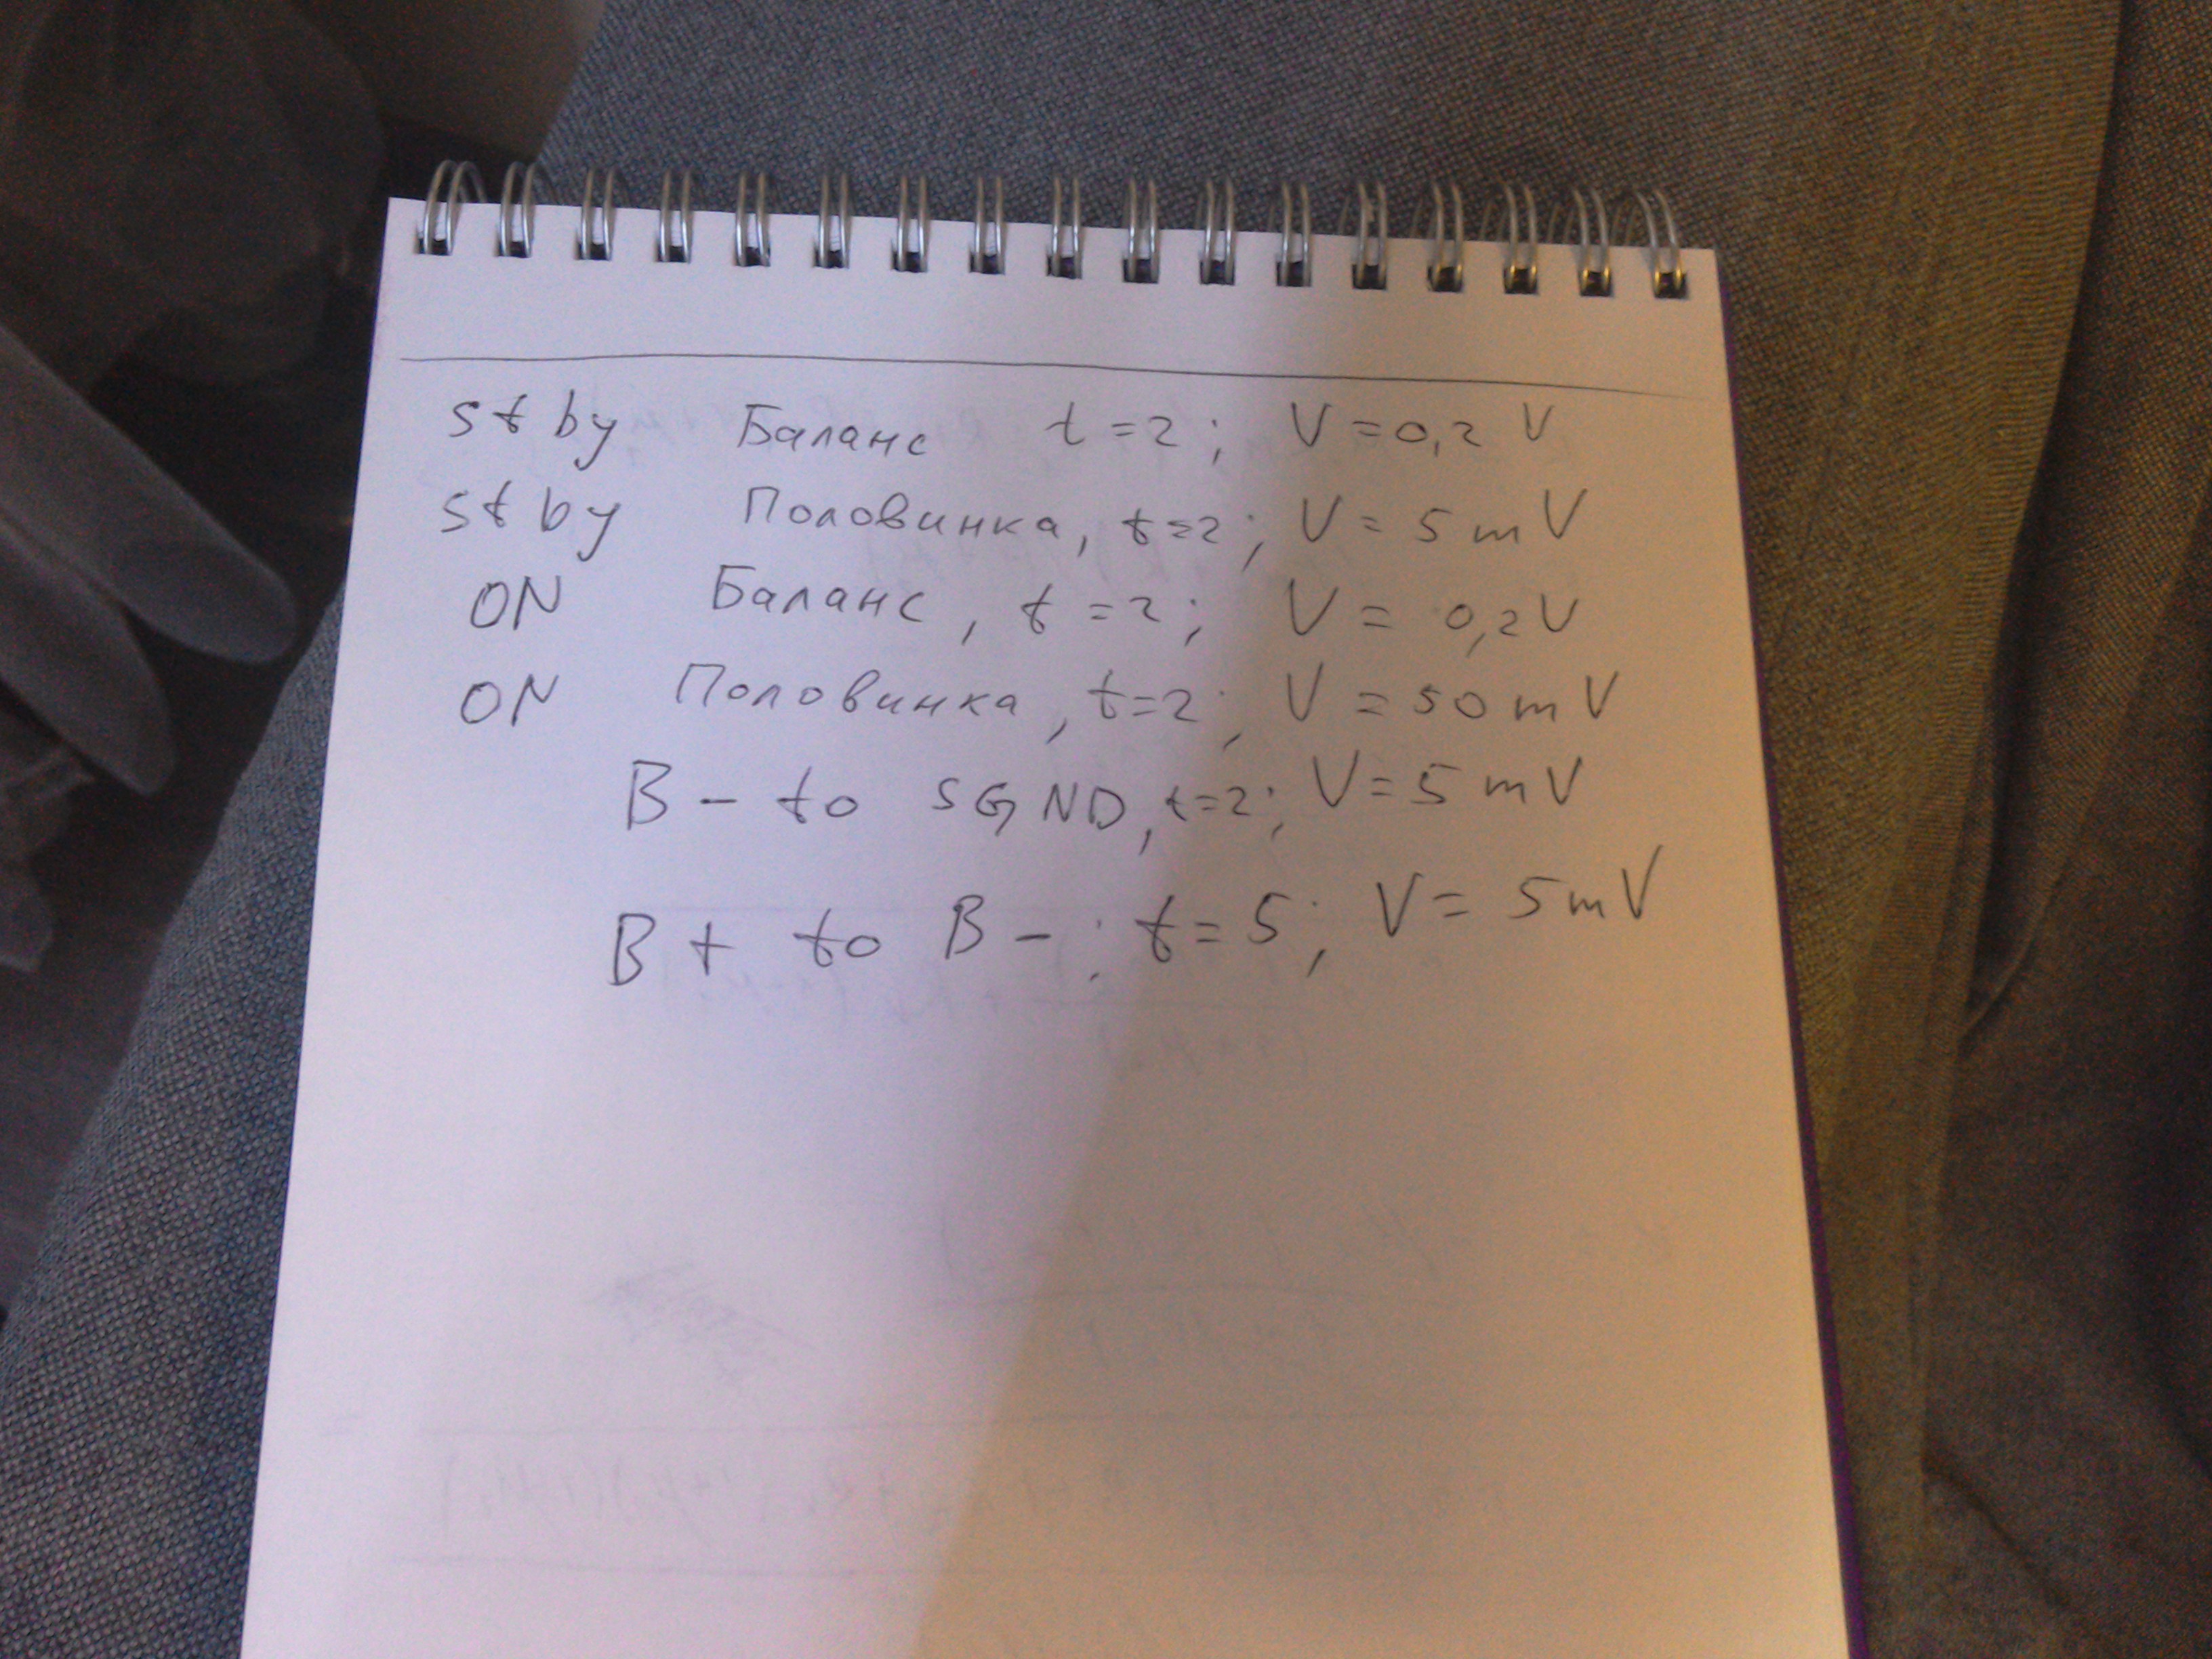 st by Баланс t = 2; V = 0,2 V
st by Половинка, t = 2; V = 5 mV
ON Баланс, t = 2; V = 0,2 V
ON Половинка, t = 2; V = 50 mV
B - to SGND, t = 2; V = 5 mV
B + to B - ; t = 5; V = 5 mV